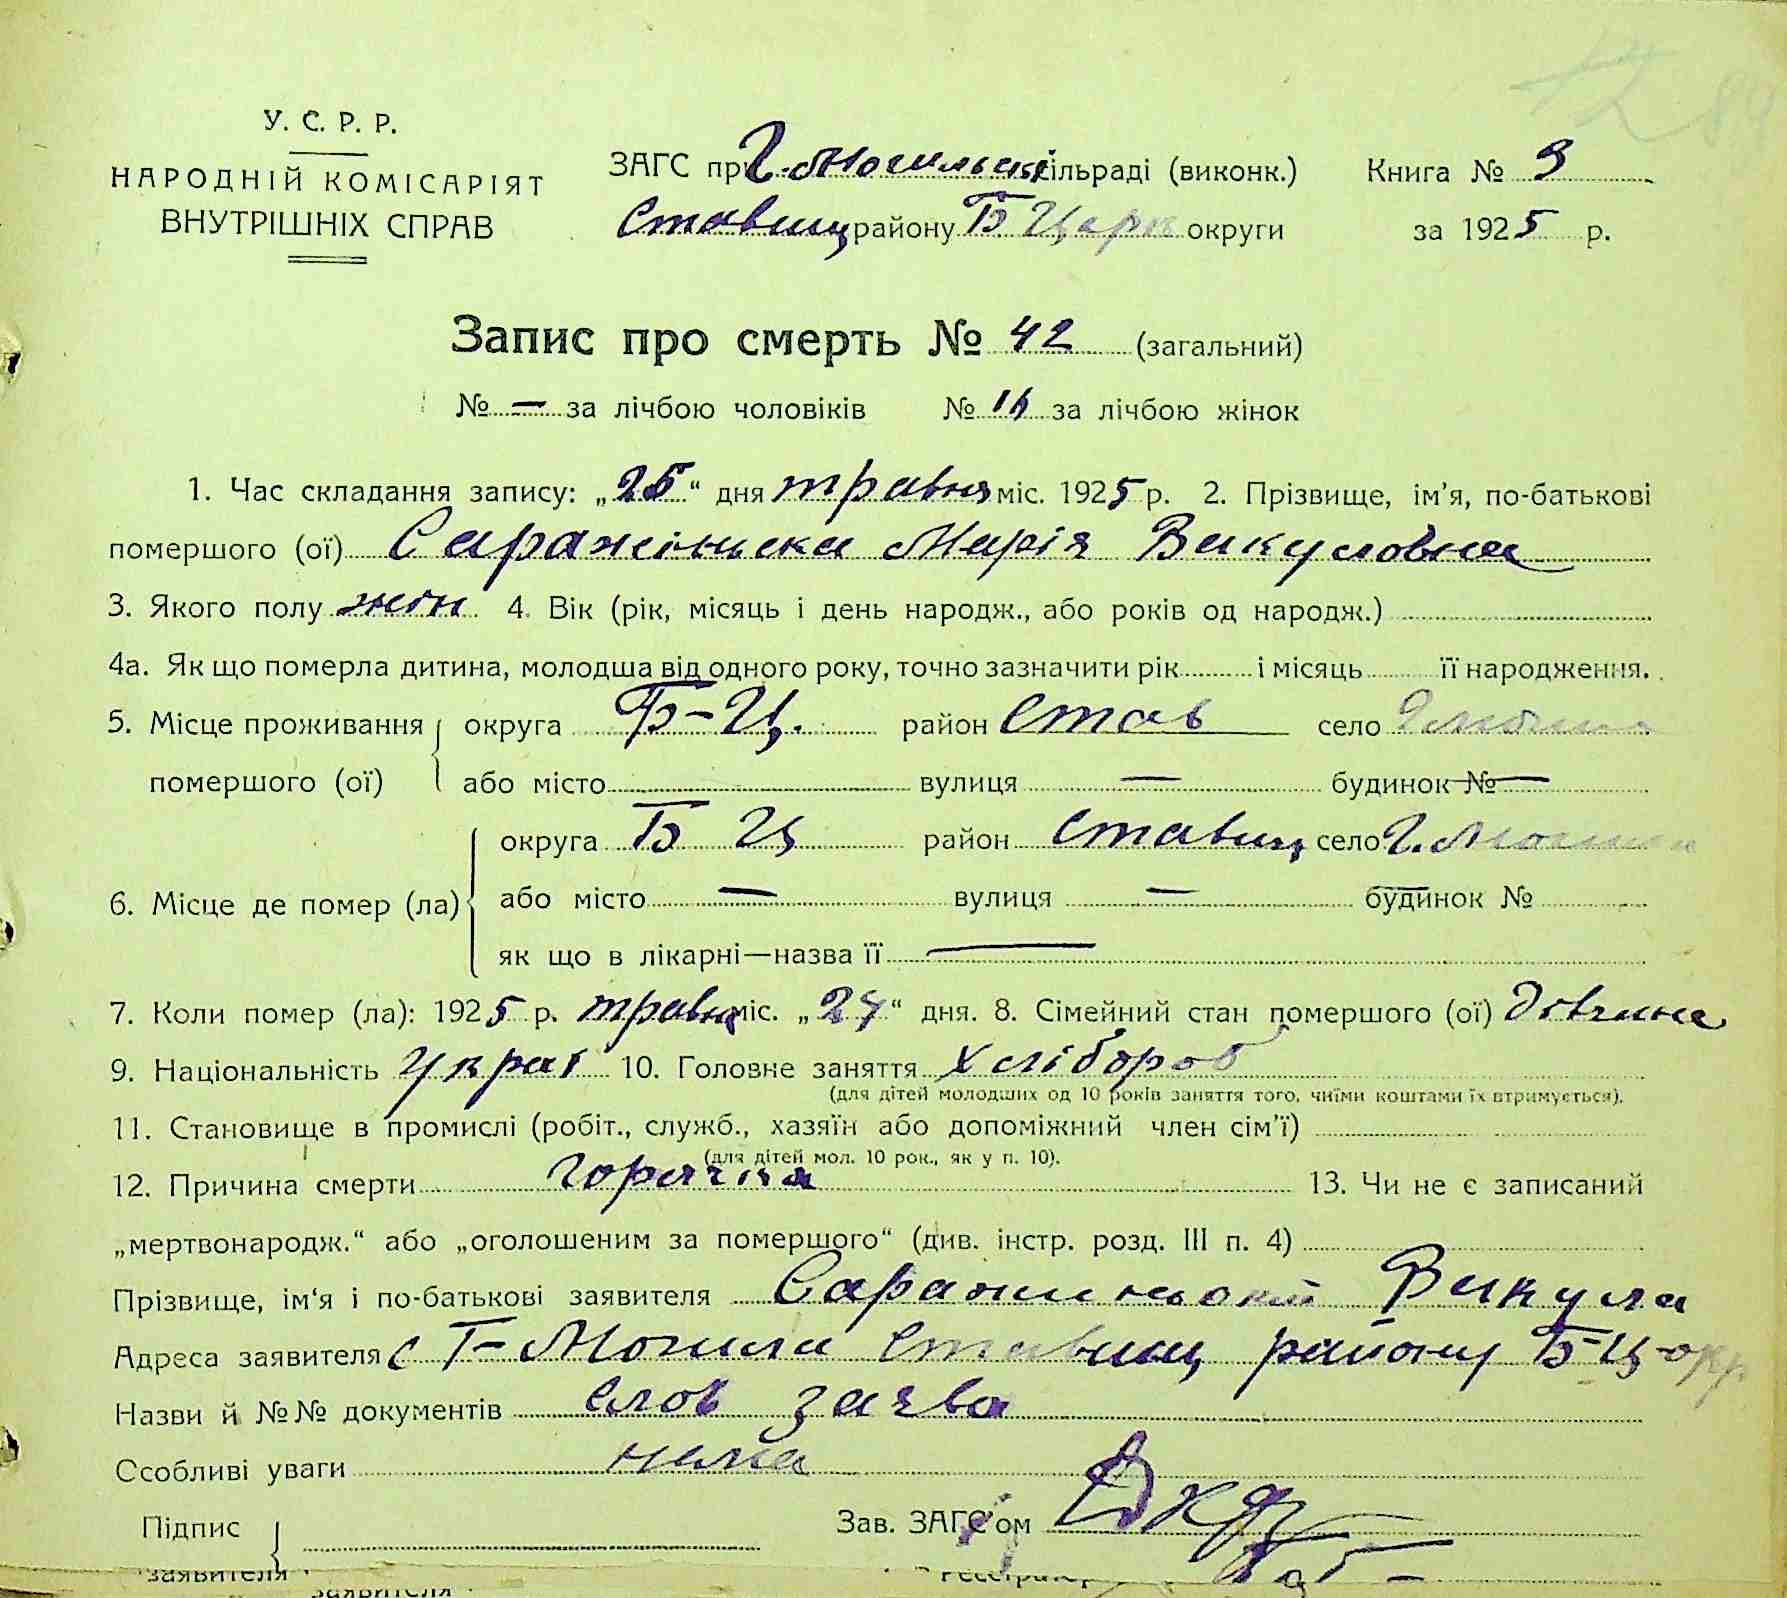 У. С. Р. Р.
НАРОДНІЙ КОМІСАРІЯТ
ВНУТРІШНІХ СПРАВ
ЗАГС при Г. Могильскі сільраді (виконк.)
Ставищ району Б Церк округи
Книга № 9
за 1925 р.
Запис про смерть № 42 (загальний)
№ — за лічбою чоловіків № за лічбою жінок
1. Час складання запису: „25“ дня травня міс. 1925 р. 2. Прізвище, ім'я, по-батькові
помершого (ої) Саражінска Марія Викуловна
3. Якого полу жін 4. Вік (рік, місяць і день народж., або років од народж.)
4а. Як що померла дитина, молодша від одного року, точно зазначити рік і місяць її народження.
5. Місце проживання помершого (ої) округа Б-Ц. район Став село
або місто вулиця — будинок № —
6. Місце де помер (ла) округа Б Ц район Ставищ село Г. Могила
або місто — вулиця — будинок №
як що в лікарні—назва її —
7. Коли помер (ла): 1925 р. травня міс. „24“ дня. 8. Сімейний стан помершого (ої) дівчина
9. Національність Украї 10. Головне заняття Хлібороб
(для дітей молодших од 10 років заняття того, чиїми коштами їх втримується).
11. Становище в промислі (робіт., служб., хазяїн або допоміжний член сім'ї)
(для дітей мол. 10 рок., як у п. 10).
12. Причина смерти горячка 13. Чи не є записаний
„мертвонародж.“ або „оголошеним за помершого“ (див. інстр. розд. III п. 4)
Прізвище, ім'я і по-батькові заявителя Саражинський Викула
Адреса заявителя с Г-Могила Ставищ району Б-Ц-окр.
Назви й №№ документів слов заява
Особливі уваги нема
Підпис заявителя
Зав. ЗАГС'ом
заявителя